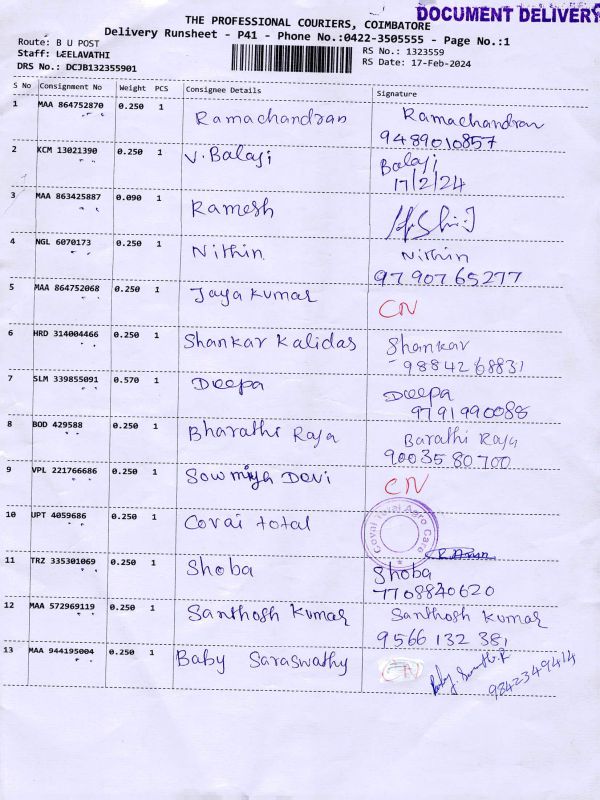 DOCUMENT DELIVERY
THE PROFESSIONAL COURIERS, COIMBATORE
Delivery Runsheet - P41 - Phone No.:0422-3505555 - Page No.:1
Route: B U POST
Staff: LEELAVATHI
DRS No.: DCJB132355901
RS No.: 1323559
RS Date: 17-Feb-2024
S No Consignment No Weight PCS Consignee Details Signature
1 MAA 864752870 0.250 1 Ramachandran Ramachandran
9489010857
2 KCM 13021390 0.250 1 V. Balaji Balaji
17/2/24
3 MAA 863425887 0.090 1 Ramesh
4 NGL 6070173 0.250 1 Nithin Nithin
97907 65277
5 MAA 864752068 0.250 1 Jaya Kumar CN
6 HRD 314004466 0.250 1 Shankar Kalidas Shankar
98842 68831
7 SLM 339855091 0.570 1 Deepa Deepa
9791990088
8 BOD 429588 0.250 1 Bharathi Raja Barathi Raja
90035 80700
9 VPL 221766686 0.250 1 Sowmiya Devi CN
10 UPT 4059686 0.250 1 Covai total Covai Total Agro Care
11 TRZ 335301069 0.250 1 Shoba Shoba
7708840620
12 MAA 572969119 0.250 1 Santhosh Kumar Santhosh Kumar
9566 132 381
13 MAA 944195004 0.250 1 Baby Saraswathy CN Baby.
9842349414